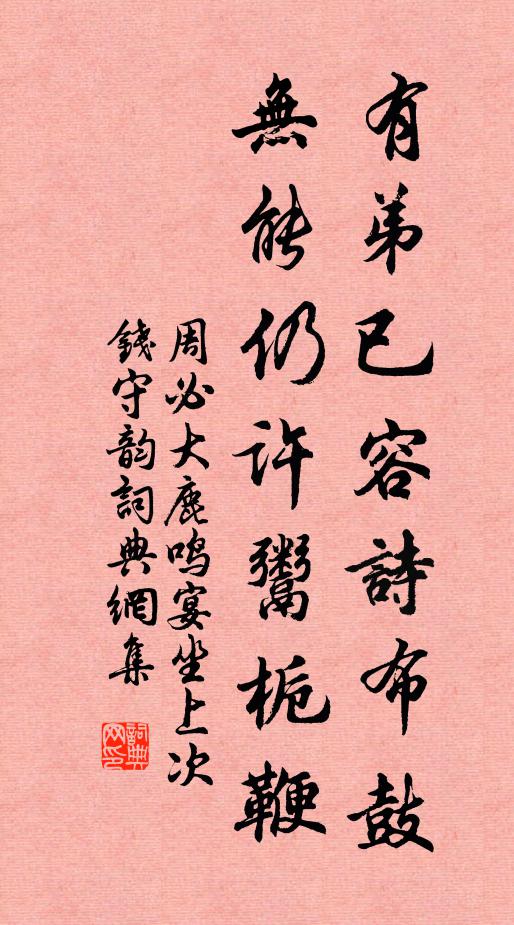 有弟已容詩布鼓
無能仍許鬻梔鞭
周必大鹿鳴宴坐上次
錢守韵詞典網集
詞典网印